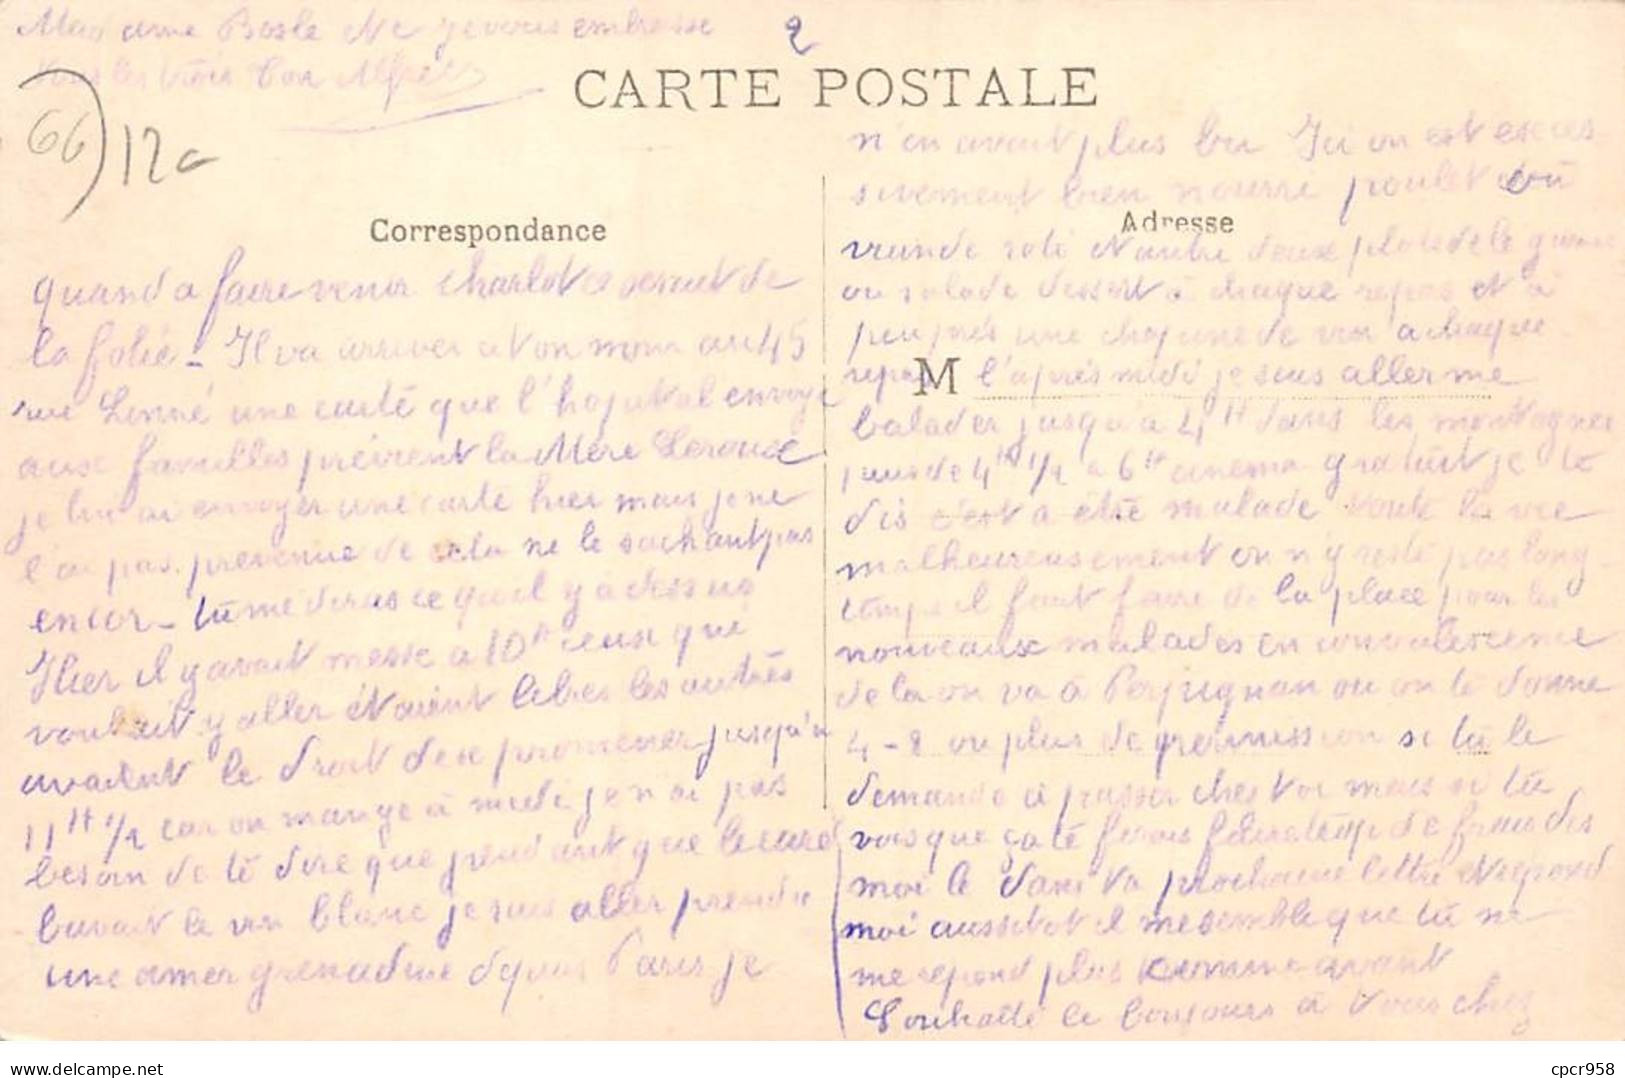 2
CARTE POSTALE
66
12c
Correspondance
quand a faire venir Charlot ce serait de
la folie - Il va arriver à ton nom au 45
rue Linné une carté que l'hopital envoye
aux familles prévient la Mère Leroux
je lui ai envoyer une carté hier mais je ne
l'ai pas prevenue de cela ne le sachant pas
encor - tu me diras ce qu'il y a dessus
Hier il y avait messe a 10h ceux qui
voulait y aller étaient libres les autrés
avaient le droit de se promener jusqu'a
11H 1/2 car on mange à midi je n'ai pas
besoin de té dire que pendant que le curé
buvait le vin blanc je suis aller prendre
une amer grenadine depuis Paris je
n'en avait plus bu Ici on est exces
sivement bien nourri poulet ou
viande roti et autre deux plats de légume
ou salade dessert à chaque repas et à
peu près une chopine de vin a chaque
repas l'après midi je suis aller me
balader jusqu'a 4H dans les montagnes
puis de 4H 1/2 a 6H cinema gratuit je te
dis c'est a etré malade toute la vie
malheureusement on n'y resté pas long-
temps il faut faire de la place pour les
nouveaux malades en convalescence
de la on va à Perpignan ou on té donne
4 - 8 ou plus de permission si tu le
demande à passer chez toi mais si tu
vois que ça té ferais faire trop de frais dis
moi le dans ta prochaine lettre et repond
moi aussitot il me semble que tu ne
me repond plus comme avant
Souhaité le bonjours à tous chez
Adresse
M
Madame Basle et je vous embrasse
tous les trois ton Alfred
cpcr958
www.delcampe.net